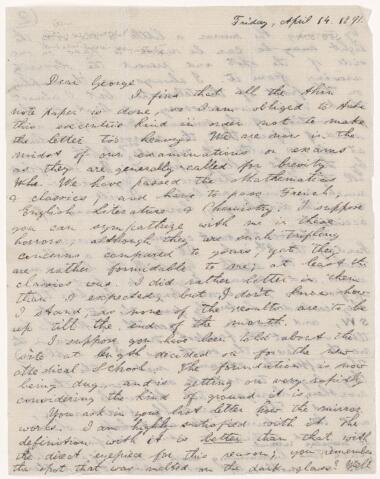 Friday, April 14. 1891.
Dear George
I find that all the thin
note paper is done, so I am obliged to take
this excentric kind in order not to make
the letter too heavy. We are now in the
midst of our examinations or exams
as they are generally called for brevity
We have passed the Mathematics
& classics, and have to pass French,
English Literature & Chemistry. I suppose
you can sympathize with me in these
horrors, although they are such trifling
concerns compared to yours, yet they
are rather formidable to me; at least the
classics was. I did rather better in them
than I expected, but I don't know how
I stand, as none of the results are to be
up till the end of the month.
I suppose you have been told about the
site at length decided on for the new
Medical School. The foundation is now
being dug, and is getting on very rapidly
considering the kind of ground it is.
You ask in your last letter how the mirror
works. I am highly satisfied with it. The
definition with it is better than that with
the direct eyepiece for this reason; you remember
the spot that was melted on the dark glass? Well